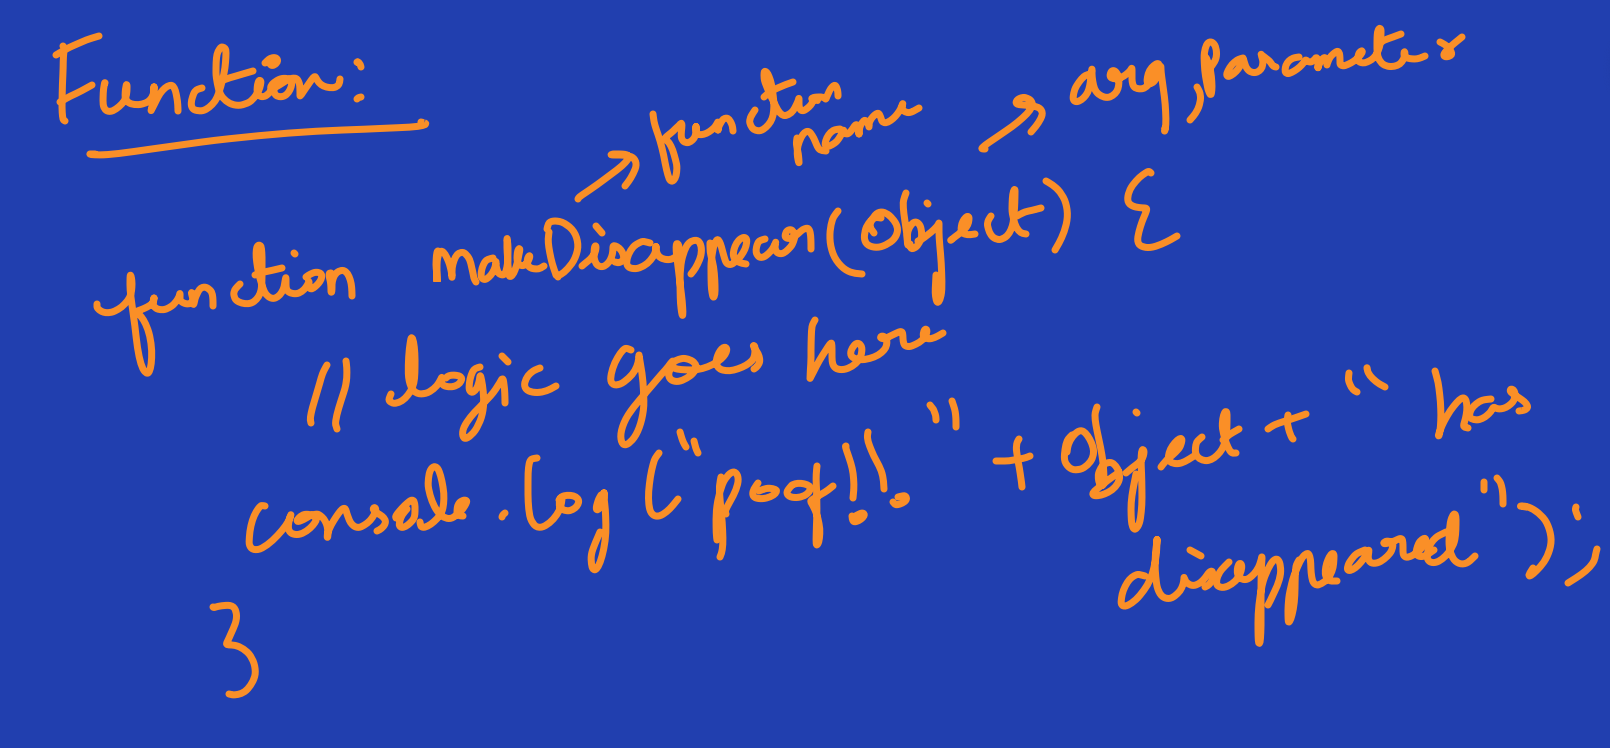 Function:
function
name
arg, parameter
function makeDisappear(Object) {
// logic goes here
console.log("poof!!" + Object + " has
disappeared");
}